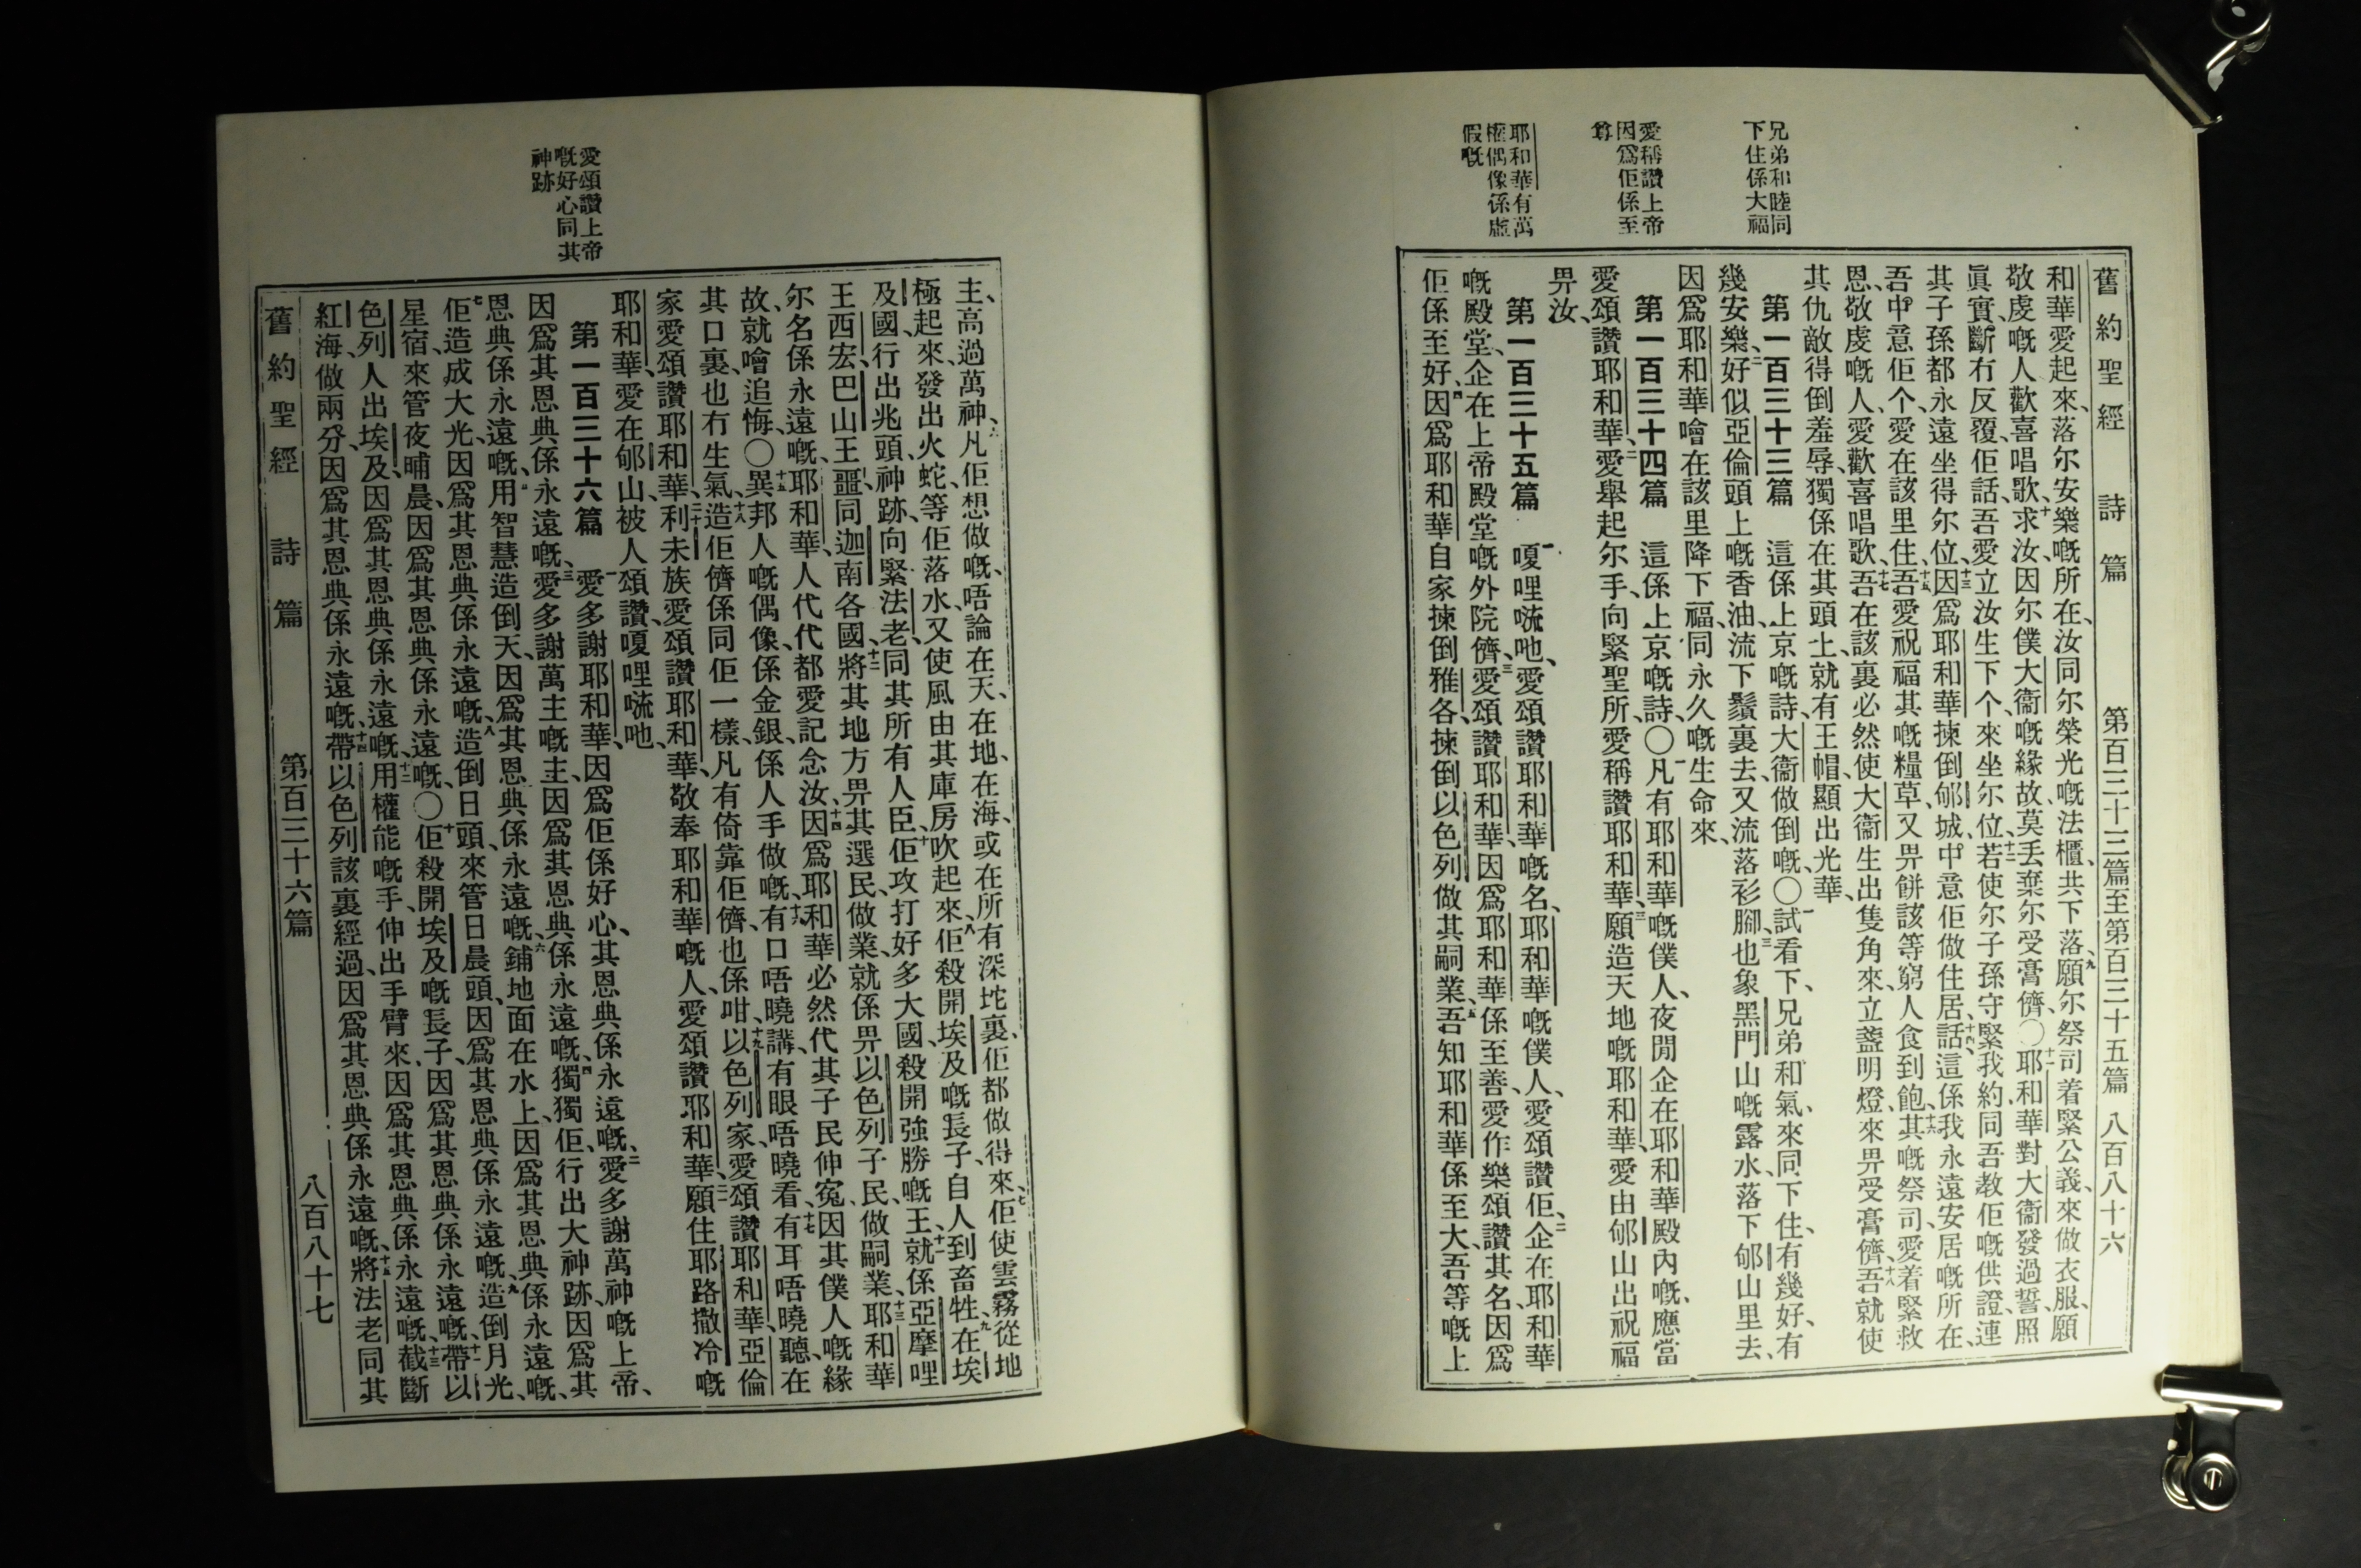 兄弟和睦同
下住係大福
愛稱讚上帝
因爲佢係至
尊
耶和華有萬
權偶像係虛
假嘅
舊約聖經 詩篇 第百三十三篇至第百三十五篇 八百八十六
和華愛起來、落尔安樂嘅所在、汝同尔榮光嘅法櫃、共下落、九願尔祭司着緊公義、來做衣服、願
敬虔嘅人歡喜唱歌、十求汝因尔僕大衞嘅緣故、莫丢棄尔受膏儕、〇十一耶和華對大衞發過誓、照
眞實、斷冇反覆、佢話、吾愛立汝生下个、來坐尔位、十二若使尔子孫守緊我約、同吾教佢嘅供證、連
其子孫都永遠坐得尔位、十三因爲耶和華揀倒郇城、中意佢做住居、十四話、這係我永遠安居嘅所在、
吾中意佢个、愛在該里住、十五吾愛祝福其嘅糧草、又畀餅該等窮人食到飽、十六其嘅祭司、愛着緊救
恩、敬虔嘅人、愛歡喜唱歌、十七吾在該裏必然使大衞生出隻角來、立盞明燈、來畀受膏儕、十八吾就使
其仇敵得倒羞辱、獨係在其頭上、就有王帽、顯出光華、
第一百三十三篇 這係上京嘅詩、大衞做倒嘅、〇一試看下、兄弟和氣、來同下住、有幾好、有
幾安樂、二好似亞倫頭上嘅香油、流下鬚裏去、又流落衫腳、三也象黑門山嘅露水、落下郇山里去、
因爲耶和華噲在該里降下福、同永久嘅生命來、
第一百三十四篇 這係上京嘅詩、〇一凡有耶和華嘅僕人、夜間企在耶和華殿內嘅、應當
愛頌讚耶和華、二愛舉起尔手、向緊聖所、愛稱讚耶和華、三願造天地嘅耶和華、愛由郇山出祝福
畀汝、
第一百三十五篇 一嗄哩㖹吔、愛頌讚耶和華嘅名、耶和華嘅僕人、愛頌讚佢、二企在耶和華
嘅殿堂、企在上帝殿堂嘅外院儕、三愛頌讚耶和華、因爲耶和華係至善、愛作樂頌讚其名、因爲
佢係至好、四因爲耶和華自家揀倒雅各、揀倒以色列做其嗣業、五吾知耶和華係至大、吾等嘅上
愛頌讚上帝
嘅好心同其
神跡
主、高過萬神、六凡佢想做嘅、唔論在天、在地、在海、或在所有深坨裏、佢都做得來、七佢使雲霧從地
極起來、發出火蛇、等佢落水、又使風由其庫房吹起來、八佢殺開埃及嘅長子、自人到畜牲、九在埃
及國、行出兆頭、神跡、向緊法老、同其所有人臣、十佢攻打好多大國、殺開強勝嘅王、十一就係亞摩哩
王西宏、巴山王噩、同迦南各國、十二將其地方畀其選民、做業、就係畀以色列子民、做嗣業、十三耶和華
尔名係永遠嘅、耶和華、人代代都愛記念汝、十四因爲耶和華必然代其子民伸寃、因其僕人嘅緣
故、就噲追悔、〇十五異邦人嘅偶像、係金銀、係人手做嘅、十六有口唔曉講、有眼唔曉看、十七有耳唔曉聽、在
其口裏、也冇生氣、十八造佢儕係同佢一樣、凡有倚靠佢儕、也係咁、十九以色列家、愛頌讚耶和華、亞倫
家愛頌讚耶和華、二十利未族愛頌讚耶和華、敬奉耶和華嘅人、愛頌讚耶和華、二一願住耶路撒冷嘅
耶和華、愛在郇山、被人頌讚、嗄哩㖹吔、
第一百三十六篇 一愛多謝耶和華、因爲佢係好心、其恩典係永遠嘅、二愛多謝萬神嘅上帝、
因爲其恩典係永遠嘅、三愛多謝萬主嘅主、因爲其恩典係永遠嘅、四獨獨佢、行出大神跡、因爲其
恩典係永遠嘅、五用智慧造倒天、因爲其恩典係永遠嘅、六鋪地面在水上、因爲其恩典係永遠嘅、
七佢造成大光、因爲其恩典係永遠嘅、八造倒日頭、來管日晨頭、因爲其恩典係永遠嘅、九造倒月光、
星宿、來管夜晡晨、因爲其恩典係永遠嘅、〇十佢殺開埃及嘅長子、因爲其恩典係永遠嘅、十一帶以
色列人出埃及、因爲其恩典係永遠嘅、十二用權能嘅手、伸出手臂來、因爲其恩典係永遠嘅、十三截斷
紅海、做兩分、因爲其恩典係永遠嘅、十四帶以色列該裏經過、因爲其恩典係永遠嘅、十五將法老同其
舊約聖經 詩篇 第百三十六篇 八百八十七